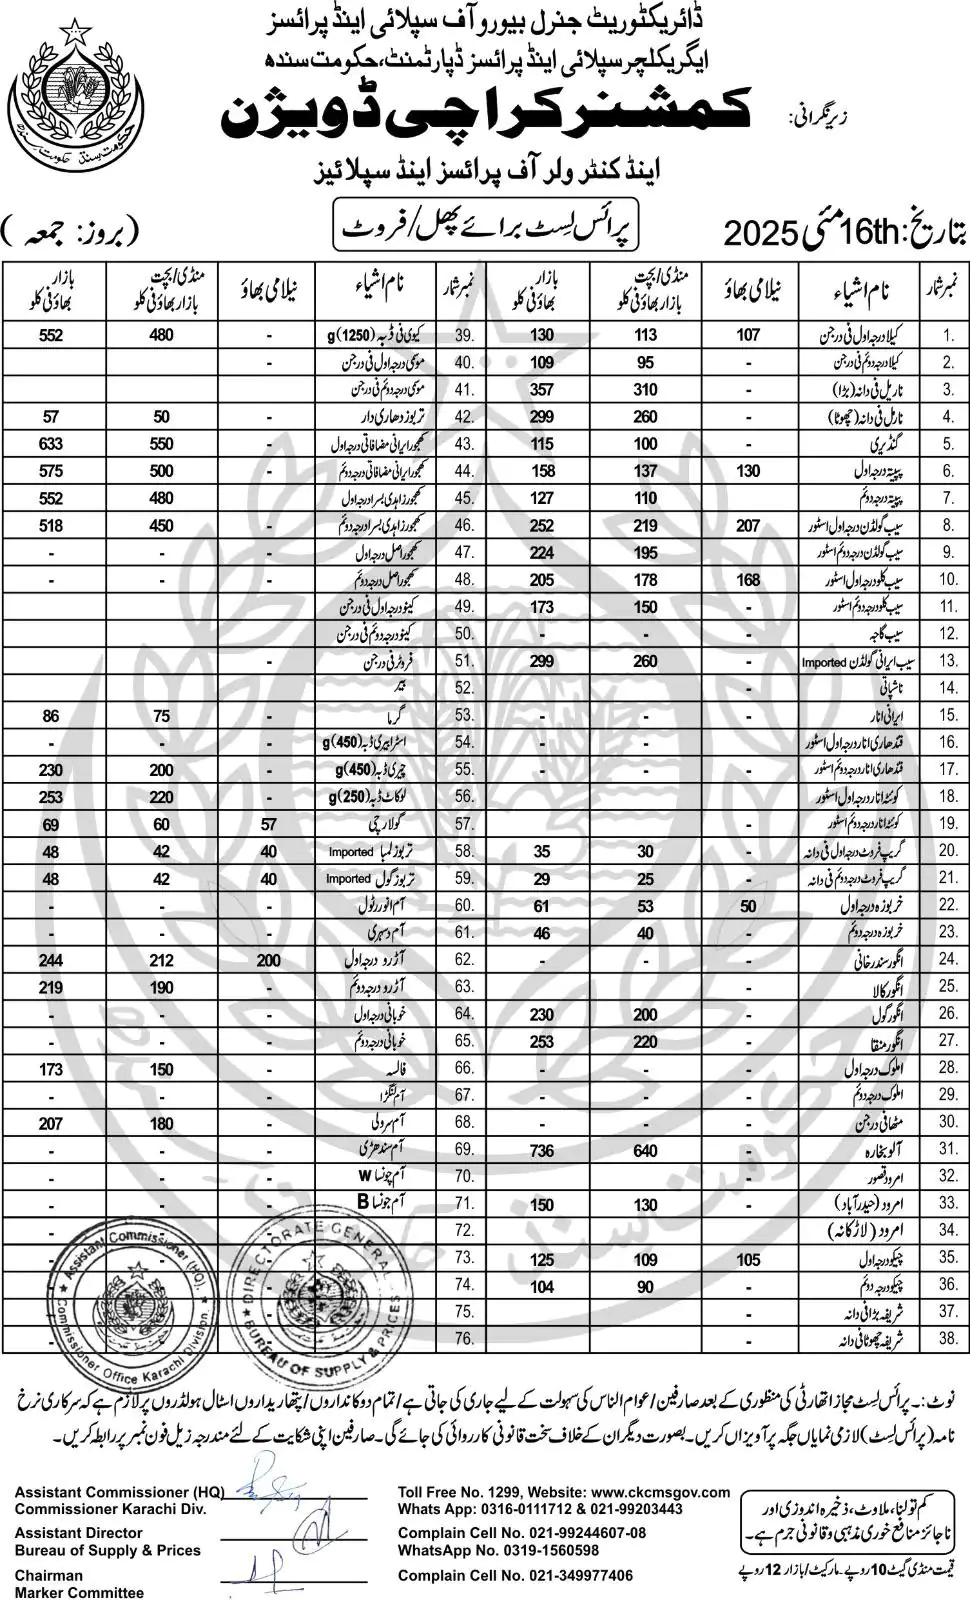 ڈائریکٹوریٹ جنرل بیورو آف سپلائی اینڈ پرائسز
ایگریکلچر سپلائی اینڈ پرائسز ڈپارٹمنٹ، حکومت سندھ
زیر نگرانی: کمشنر کراچی ڈویژن
اینڈ کنٹرولر آف پرائسز اینڈ سپلائیز
بتاریخ: 16th مئی 2025 پرائس لسٹ برائے پھل/فروٹ (بروز: جمعہ)
نمبر شمار نام اشیاء نیلامی بھاؤ منڈی/بچت بازار بھاؤ فی کلو بازار بھاؤ فی کلو نمبر شمار نام اشیاء نیلامی بھاؤ منڈی/بچت بازار بھاؤ فی کلو بازار بھاؤ فی کلو
1. کیلا درجہ اول فی درجن 107 113 130 39. کیوی فی ڈبہ (1250)g - 480 552
2. کیلا درجہ دوئم فی درجن - 95 109 40. موسمی درجہ اول فی درجن -
3. ناریل فی دانہ (بڑا) 310 357 41. موسمی درجہ دوئم فی درجن
4. ناریل فی دانہ (چھوٹا) - 260 299 42. تربوز دھاری دار - 50 57
5. گنڈیری - 100 115 43. کھجور ایرانی مضافاتی درجہ اول - 550 633
6. پپیتہ درجہ اول 130 137 158 44. کھجور ایرانی مضافاتی درجہ دوئم - 500 575
7. پپیتہ درجہ دوئم 110 127 45. کھجور زاہدی بسرا درجہ اول - 480 552
8. سیب گولڈن درجہ اول اسٹور 207 219 252 46. کھجور زاہدی بسرا درجہ دوئم - 450 518
9. سیب گولڈن درجہ دوئم اسٹور 195 224 47. کھجور اصل درجہ اول - - -
10. سیب کلو درجہ اول اسٹور 168 178 205 48. کھجور اصل درجہ دوئم - - -
11. سیب کلو درجہ دوئم اسٹور - 150 173 49. کینو درجہ اول فی درجن -
12. سیب گاجہ - - - 50. کینو درجہ دوئم فی درجن
13. سیب ایرانی گولڈن Imported - 260 299 51. فروٹر فی درجن -
14. ناشپاتی - 52. بیر
15. ایرانی انار - - - 53. گرما - 75 86
16. قندھاری انار درجہ اول اسٹور - - 54. اسٹرابیری ڈبہ (450)g - - -
17. قندھاری انار درجہ دوئم اسٹور - - - 55. چیری ڈبہ (450)g - 200 230
18. کوئٹہ انار درجہ اول اسٹور 56. لوکاٹ ڈبہ (250)g - 220 253
19. کوئٹہ انار درجہ دوئم اسٹور - 57. گولارچی 57 60 69
20. گریپ فروٹ درجہ اول فی دانہ - 30 35 58. تربوز لمبا Imported 40 42 48
21. گریپ فروٹ درجہ دوئم فی دانہ - 25 29 59. تربوز گول Imported 40 42 48
22. خربوزہ درجہ اول 50 53 61 60. آم انور رٹول - - -
23. خربوزہ درجہ دوئم - 40 46 61. آم دسہری - - -
24. انگور سندرخانی - - - 62. آڑو درجہ اول 200 212 244
25. انگور کالا 63. آڑو درجہ دوئم - 190 219
26. انگور گول - 200 230 64. خوبانی درجہ اول - - -
27. انگور منقا - 220 253 65. خوبانی درجہ دوئم - - -
28. املوک درجہ اول - - - 66. فالسہ - 150 173
29. املوک درجہ دوئم - 67. آم لنگڑا - - -
30. مٹھا فی درجن - - - 68. آم سرولی - 180 207
31. آلو بخارہ - 640 736 69. آم سندھڑی - - -
32. امرود قصور - 70. آم چونسا W - - -
33. امرود (حیدرآباد) - 130 150 71. آم چونسا B - - -
34. امرود (لاڑکانہ) 72. -
35. چیکو درجہ اول 105 109 125 73.
36. چیکو درجہ دوئم - 90 104 74.
37. شریفہ بڑا فی دانہ - 75.
38. شریفہ چھوٹا فی دانہ - 76.
Assistant Commissioner (HQ)
Commissioner Office Karachi Division.
DIRECTORATE GENERAL
BUREAU OF SUPPLY & PRICES
نوٹ:۔ پرائس لسٹ مجاز اتھارٹی کی منظوری کے بعد صارفین/عوام الناس کی سہولت کے لیے جاری کی جاتی ہے/تمام دوکانداروں/پتھاریداروں اسٹال ہولڈروں پر لازم ہے کہ سرکاری نرخ
نامہ (پرائس لسٹ) لازمی نمایاں جگہ پر آویزاں کریں۔ بصورت دیگر ان کے خلاف سخت قانونی کارروائی کی جائے گی۔ صارفین اپنی شکایت کے لئے مندرجہ زیل فون نمبر پر رابطہ کریں۔
Assistant Commissioner (HQ)
Commissioner Karachi Div.
Assistant Director
Bureau of Supply & Prices
Chairman
Marker Committee
Toll Free No. 1299, Website: www.ckcmsgov.com
Whats App: 0316-0111712 & 021-99203443
Complain Cell No. 021-99244607-08
WhatsApp No. 0319-1560598
Complain Cell No. 021-349977406
کم تولنا، ملاوٹ، ذخیرہ اندوزی اور
ناجائز منافع خوری مذہبی و قانونی جرم ہے۔
قیمت منڈی گیٹ 10 روپے۔ مارکیٹ/بازار 12 روپے